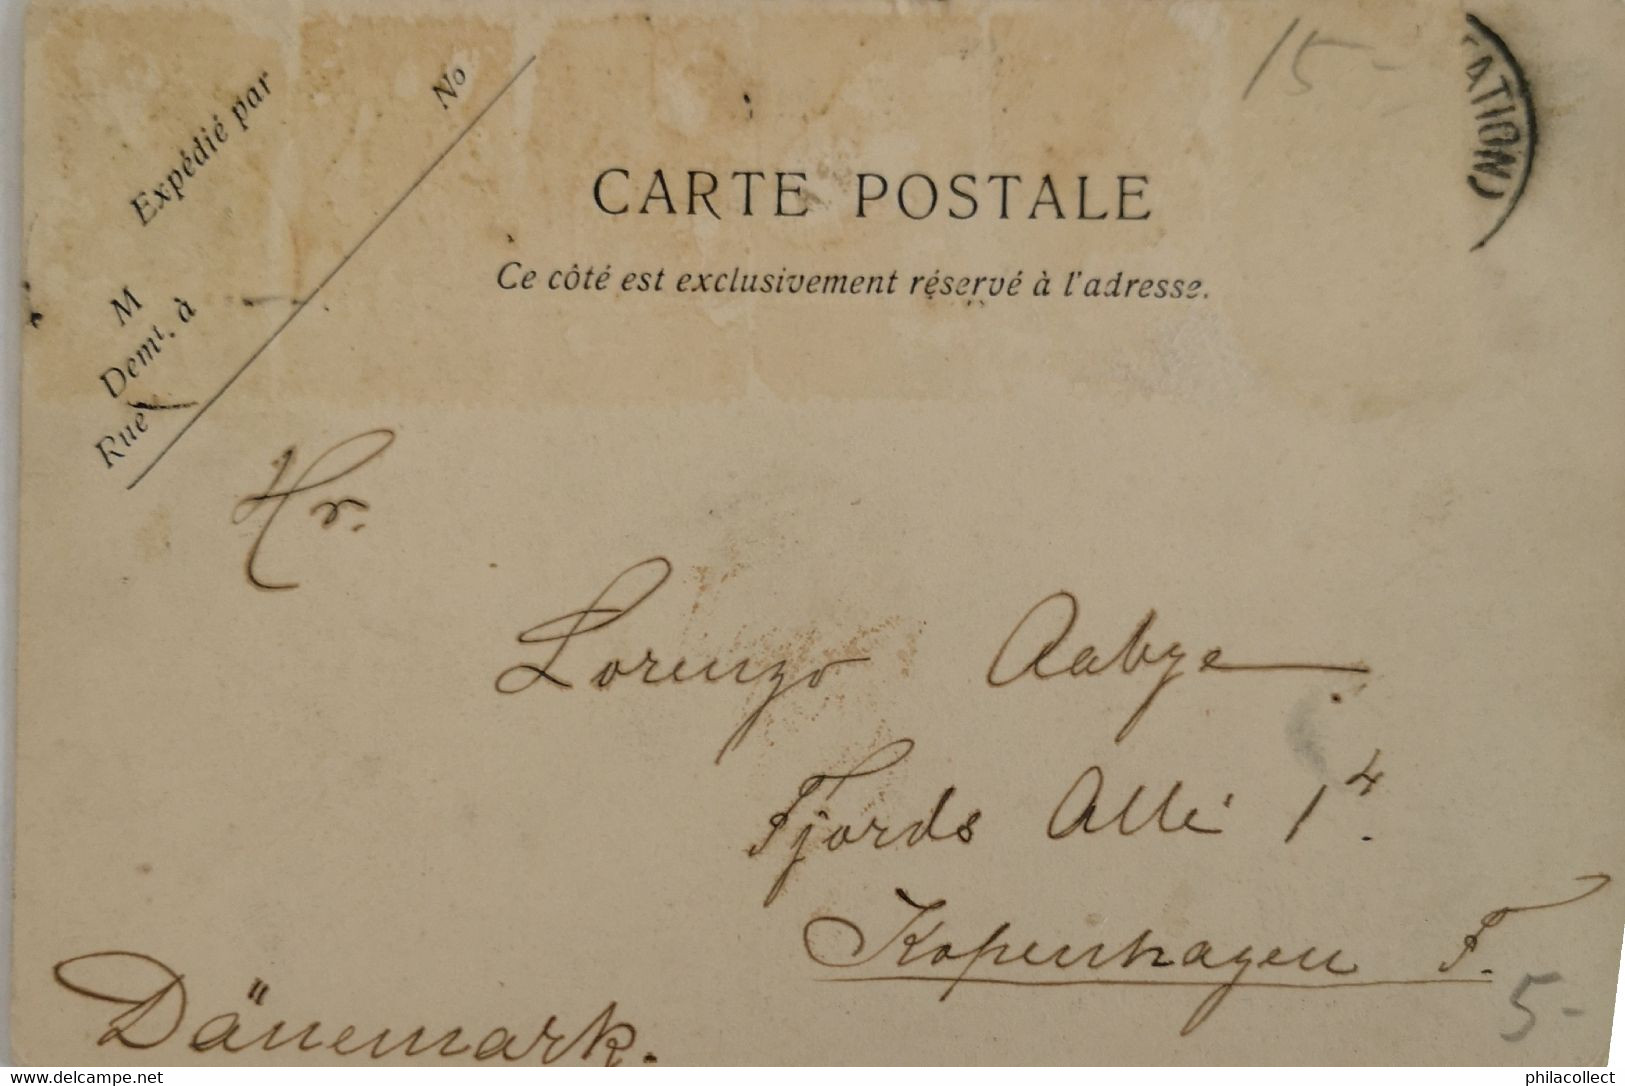 Expédié par
No
M
Demt. à
Rue
15-
ATION)
CARTE POSTALE
Ce côté est exclusivement réservé à l'adresse.
Hr.
Lorenzo Aabye
Fjords Allé 1 4.
Kopenhagen F.
Dänemark.
5-
https://www.delcampe.net
philacollect